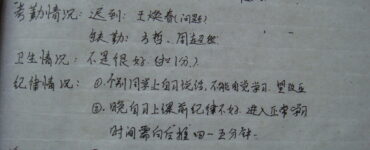 考勤情况：迟到：王燃春(问题)
缺勤：方哲、周
卫生情况：不是很好.(扣1分.)
纪律情况：①.个别同学上自习说话，不能自觉学习.望改正
②.晚自习上课前纪律不好.进入正常学习
时间需向后推四一五分钟.